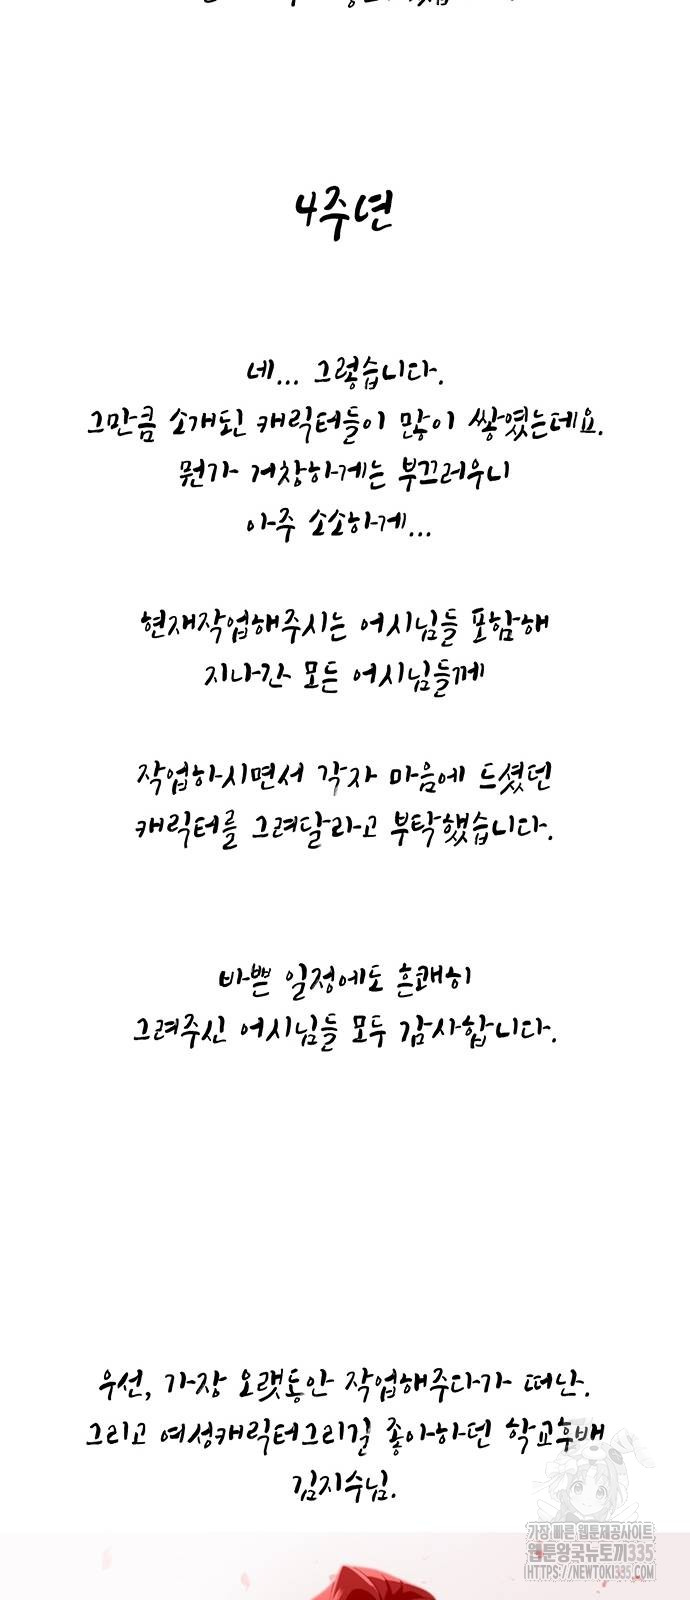 4주년
네... 그렇습니다.
그만큼 소개된 캐릭터들이 많이 쌓였는데요.
뭔가 거창하게는 부끄러우니
아주 소소하게...
현재작업해주시는 어시님들 포함해
지나간 모든 어시님들께
작업하시면서 각자 마음에 드셨던
캐릭터를 그려달라고 부탁했습니다.
바쁜 일정에도 흔쾌히
그려주신 어시님들 모두 감사합니다.
우선, 가장 오랫동안 작업해주다가 떠난.
그리고 여성캐릭터그리길 좋아하던 학교후배
김지수님.
가장 빠른 웹툰제공사이트
웹툰왕국뉴토끼335
HTTPS://NEWTOKI335.COM